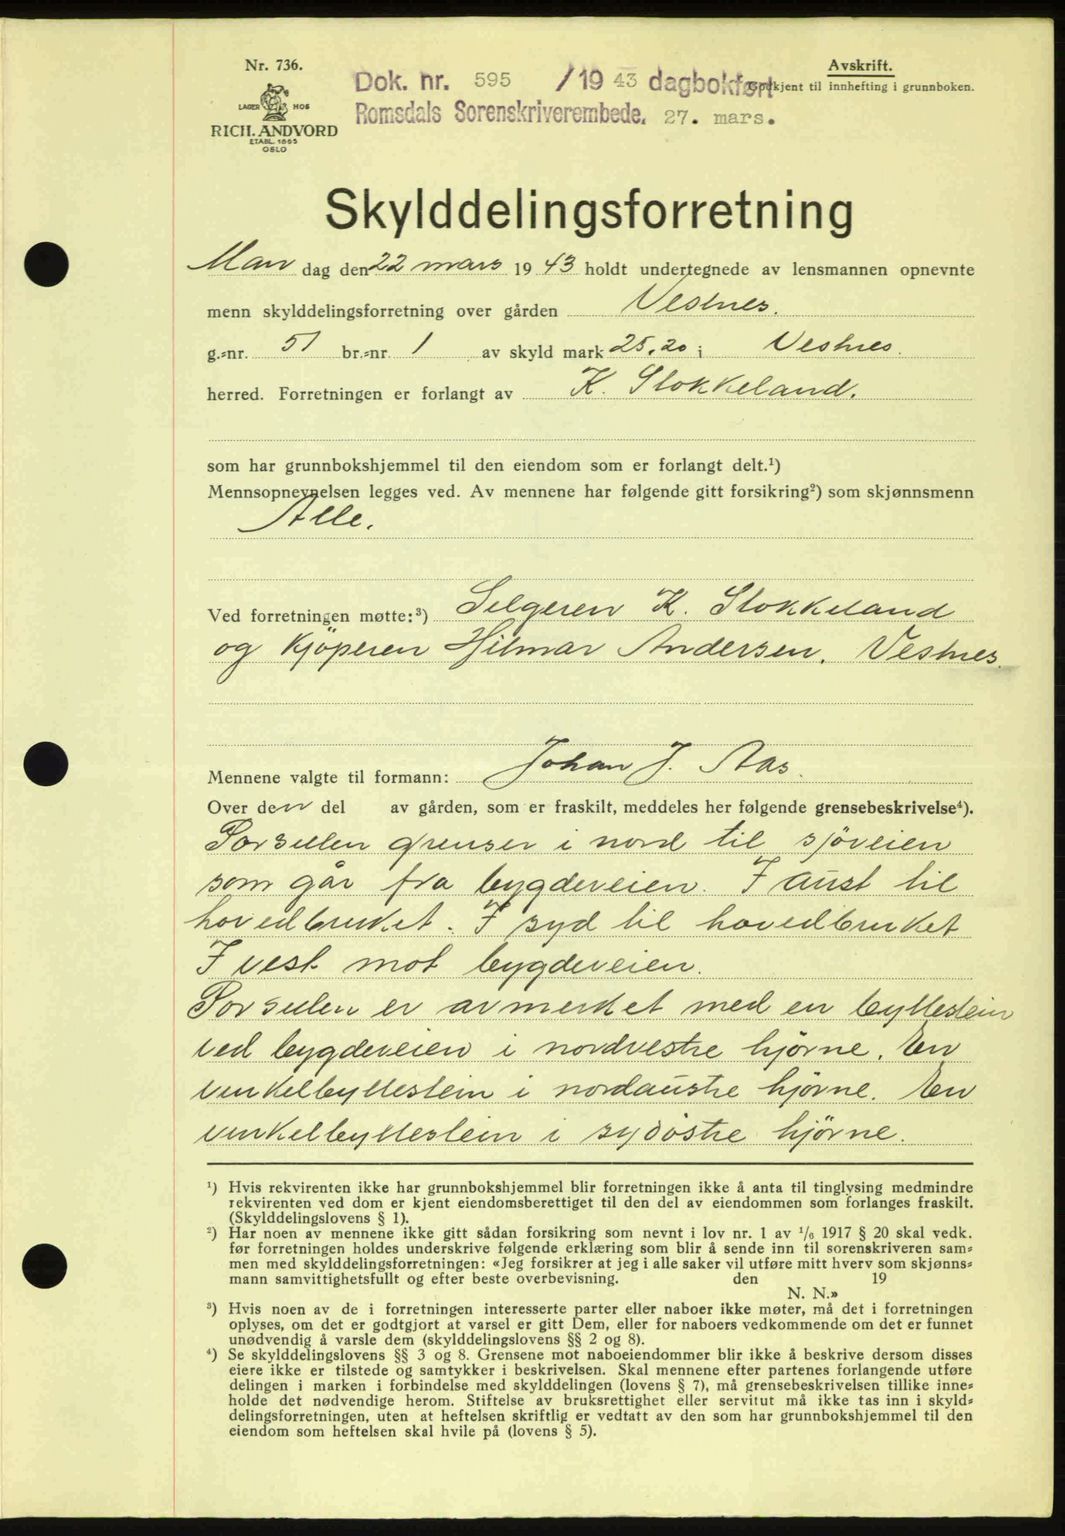 Nr. 736.
LAGER HOS
RICH. ANDVORD
ETABL. 1865
OSLO
Dok. nr. 595 /19 43 dagbokført
Romsdals Sorenskriverembede. 27. mars.
Avskrift.
Godkjent til innhefting i grunnboken.
Skylddelingsforretning
Man dag den 22 mars 19 43 holdt undertegnede av lensmannen opnevnte
menn skylddelingsforretning over gården Vestnes.
g.=nr. 51 br.=nr. 1 av skyld mark 25.20 i Vestnes.
herred. Forretningen er forlangt av K. Stokkeland.
som har grunnbokshjemmel til den eiendom som er forlangt delt.¹)
Mennsopnevnelsen legges ved. Av mennene har følgende gitt forsikring²) som skjønnsmenn
Alle.
Ved forretningen møtte:³) Selgeren K. Stokkeland
og kjöperen Hilmar Andersen. Vestnes.
Mennene valgte til formann: Johan J. Aas.
Over den del av gården, som er fraskilt, meddeles her følgende grensebeskrivelse⁴).
Parsellen grenser i nord til sjöveien
som går fra bygdeveien. I aust til
hovedbruket. I syd til hovedbruket
I vest mot bygdeveien.
Parsellen er avmerket med en byttestein
ved bygdeveien i nordvestre hjørne. En
vinkelbyttestein i nordaustre hjørne. En
vinkelbyttestein i sydöstre hjørne.
¹) Hvis rekvirenten ikke har grunnbokshjemmel blir forretningen ikke å anta til tinglysing medmindre
rekvirenten ved dom er kjent eiendomsberettiget til den del av eiendommen som forlanges fraskilt.
(Skylddelingslovens § 1).
²) Har noen av mennene ikke gitt sådan forsikring som nevnt i lov nr. 1 av ¹/₆ 1917 § 20 skal vedk.
før forretningen holdes underskrive følgende erklæring som blir å sende inn til sorenskriveren sam=
men med skylddelingsforretningen: «Jeg forsikrer at jeg i alle saker vil utføre mitt hverv som skjønns=
mann samvittighetsfullt og efter beste overbevisning. den 19
N. N.»
³) Hvis noen av de i forretningen interesserte parter eller naboer ikke møter, må det i forretningen
oplyses, om det er godtgjort at varsel er gitt Dem, eller for naboers vedkommende om det er funnet
unødvendig å varsle dem (skylddelingslovens §§ 2 og 8).
⁴) Se skylddelingslovens §§ 3 og 8. Grensene mot naboeiendommer blir ikke å beskrive dersom disses
eiere ikke er tilstede og samtykker i beskrivelsen. Skal mennene efter partenes forlangende utføre
delingen i marken i forbindelse med skylddelingen (lovens § 7), må grensebeskrivelsen tillike inne=
holde det nødvendige herom. Stiftelse av bruksrettighet eller servitut må ikke tas inn i skyld=
delingsforretningen, uten at heftelsen skriftlig er vedtatt av den som har grunnbokshjemmel til den
eiendom som heftelsen skal hvile på (lovens § 5).